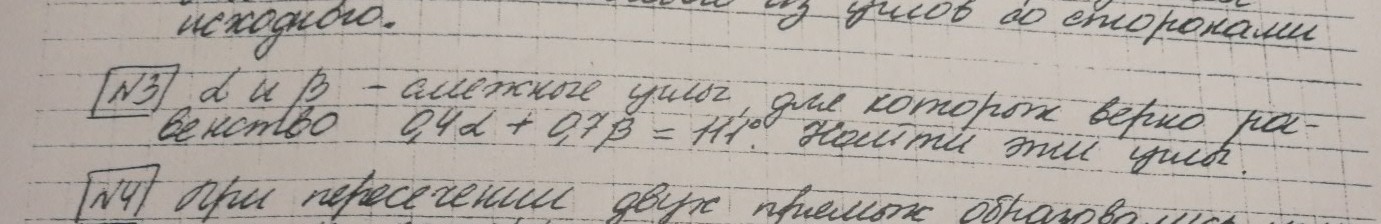 из углов со сторонами
исходного.
№3 α и β - смежные углы, для которых верно ра-
венство 0,4α + 0,7β = 111°. Найти эти углы.
№4 При пересечении двух прямых